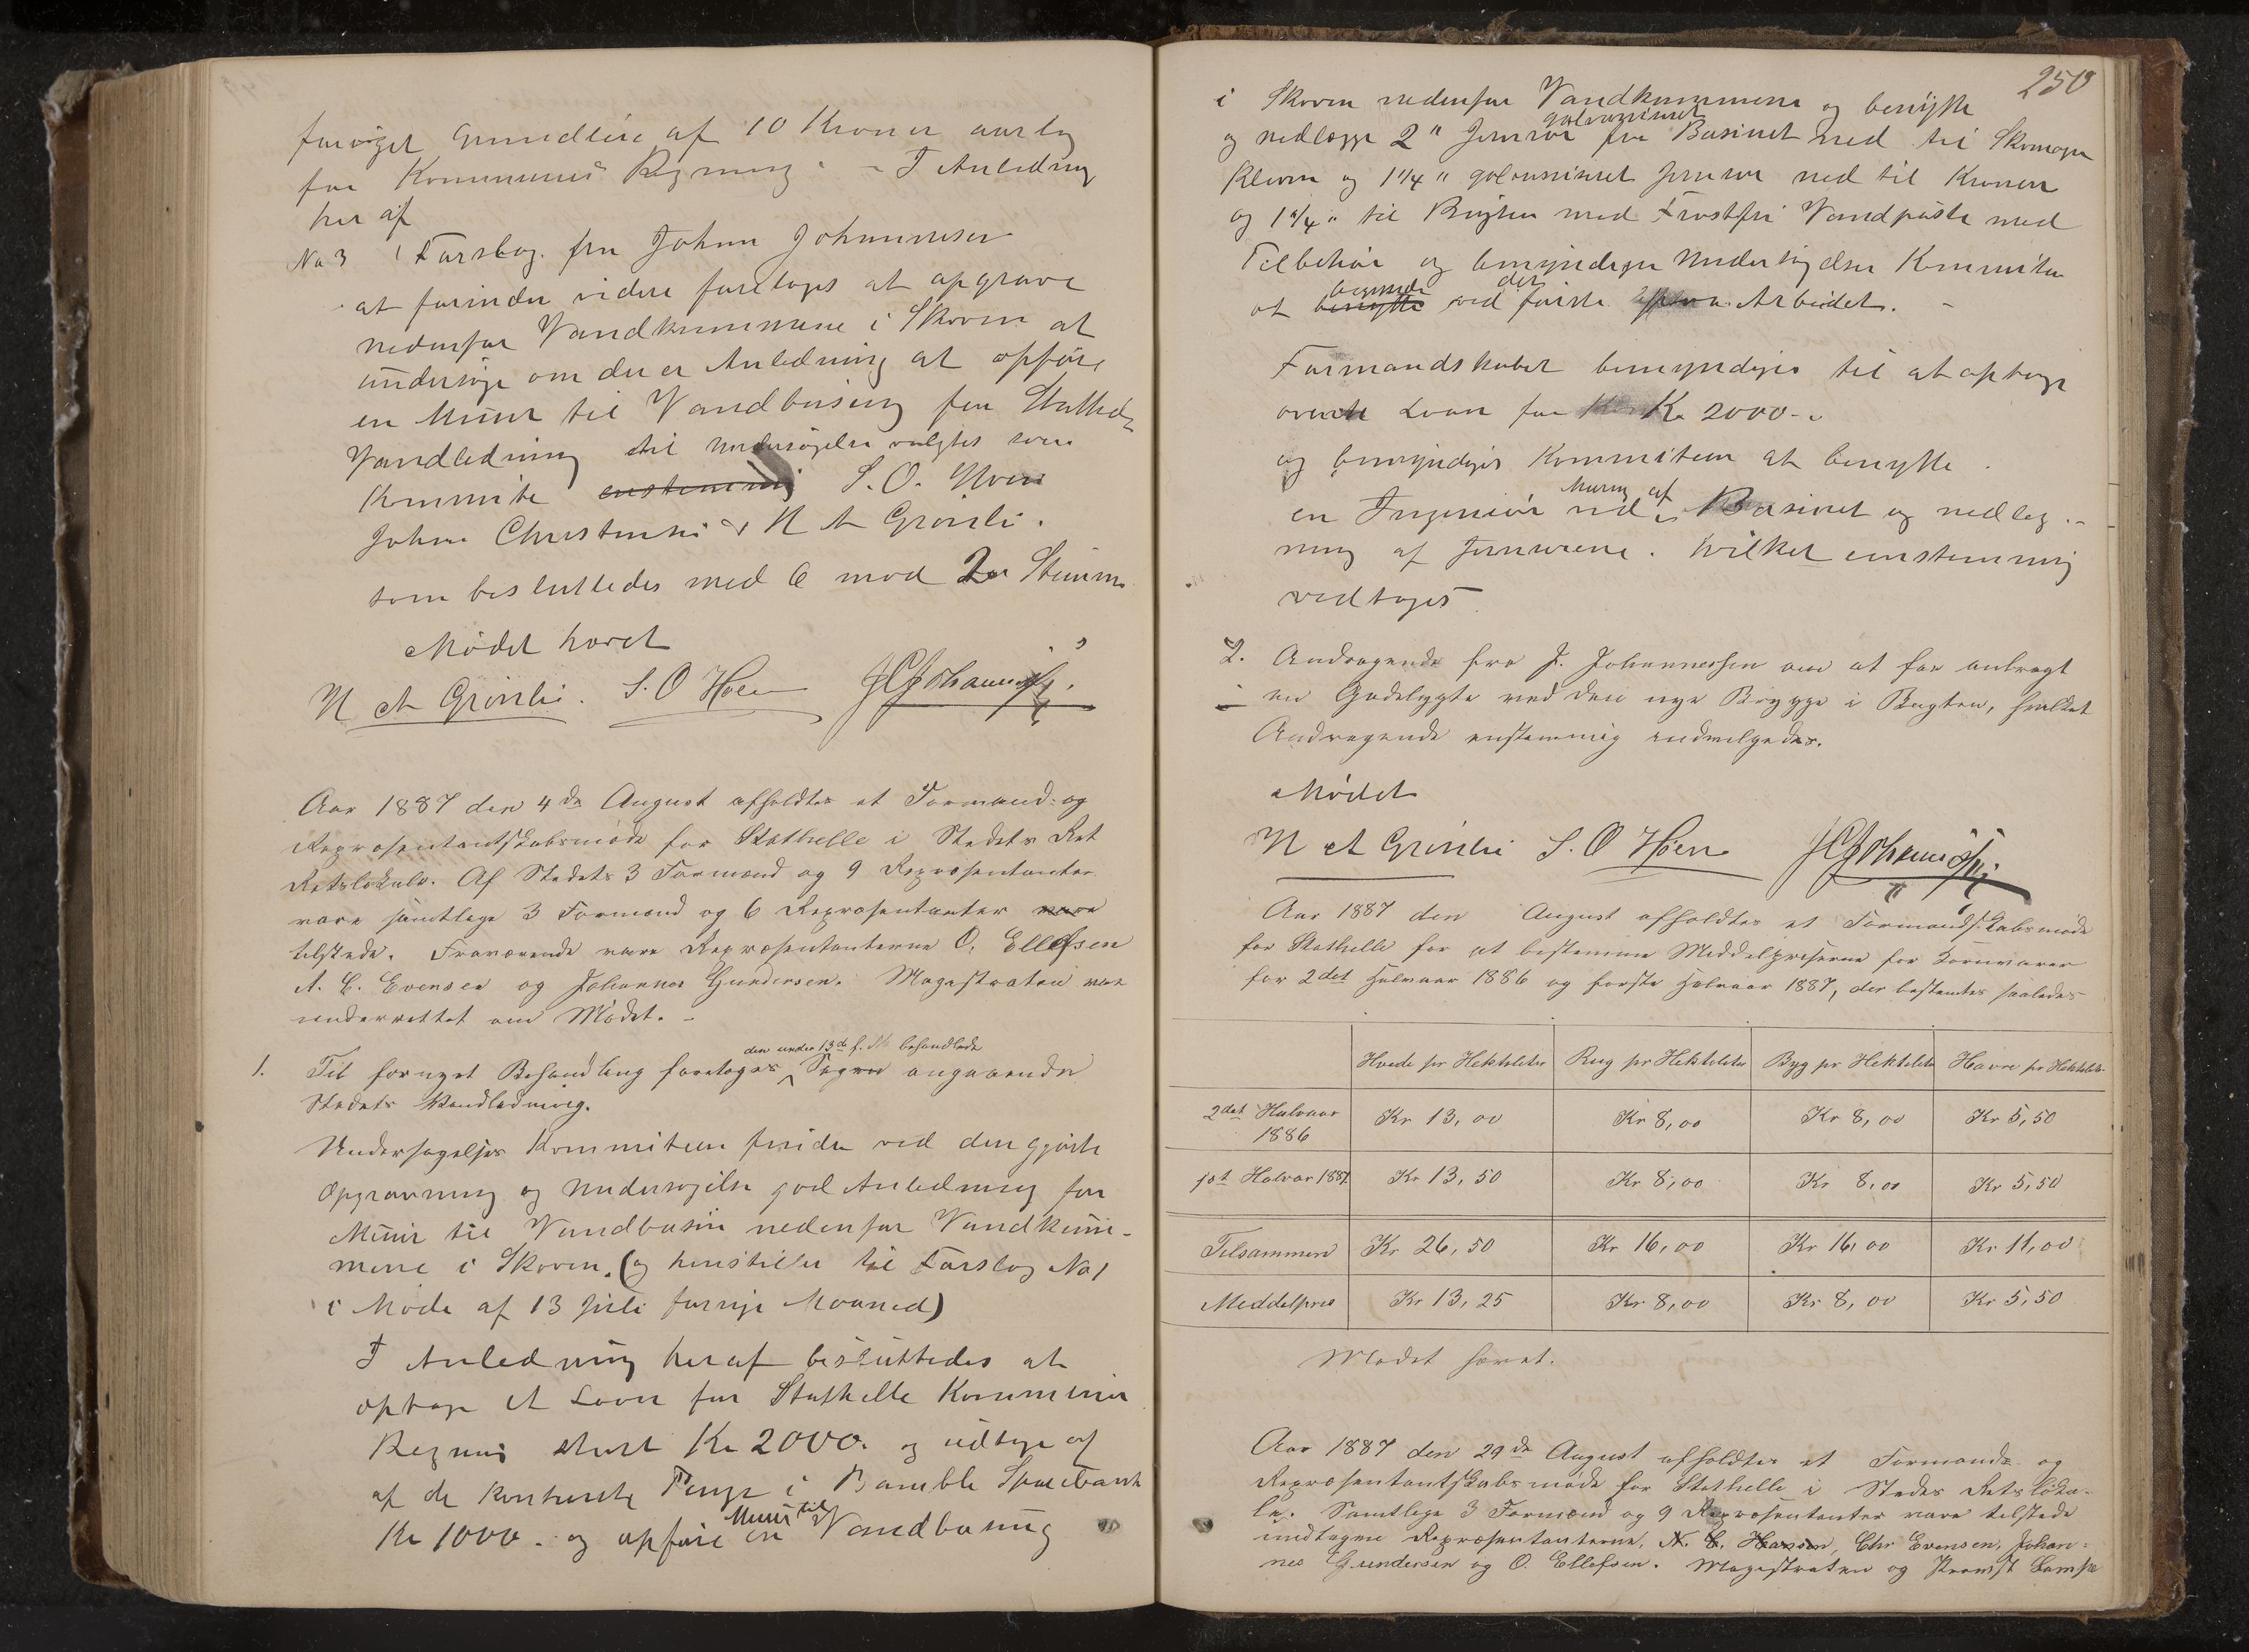 forøget Grundleie af 10 Kroner aarlig
for Kommunens Regning. - I Anledning
her af
No 3 Forslag fra Johan Johannesen
at forinden videre foretages at opgrave
nedenfor Vandkummene i Skoven at
undersøge om der er Anledning at opføre
en Muur til Vandbasing for Stathelle
Vandledning til undersøgelse valgtes som
Kommite enstemmig S. O. Hoen
Johan Christensen & N A Grønli.
som besluttedes med 6 mod 2 Stemm
Mødet hævet
N A Grønli. S. O Hoen
Aar 1887 den 4de August afholdtes et Formand- og
Repræsentantskabsmøde for Stathelle i Stedets Ret
Retslokale. Af Stedets 3 Formænd og 9 Repræsentanter
vare samtlige 3 Formænd og 6 Repræsentanter vare
tilstede. Fraværende vare Repræsentanterne O. Ellefsen
A. C. Evensen og Johannes Gundersen. Magistraten var
underrettet om Mødet. -
den under 13de f. M. behandlede
1. Til fornyet Behandling foretoges Sagen angaaende
Stedets Vandledning.
Undersøgelses Kommiteen finder ved den gjorte
Opgravning og undersøgelse god Anledning for
Muur til Vandbasin nedenfor Vandkum-
mene i Skoven. (og henstiller til Forslag No 1
i Møde af 13 Juli forrige Maaned)
I Anledning heraf besluttedes at
optage et Laan for Stathelle Kommunes
Regning stort Kr 2000. og udtage af
af de Penge i Bamble Sparebank
Muur til
Kr 1000. og opføre en Vandbasing
250
i Skoven nedenfor Vandkummene og benytte
galvaniseret
og nedlægge 2" Jernrør fra Basinet ned til Skomager
Kleven og 1 1/4" galvaniseret Jernrør ned til Kronen
og 1 1/4" til Bugten med Frostfri Vandposte med
Tilbehør og bemyndiges Undersøgelses Kommiteen
begynde det
at benytte ved første Arbeidet. -
Formandskabet bemyndiges til at optage
ovente Laan for Kr 2000-
og bemyndiges Kommiteen at benytte
Muring af
en Ingeniør ved Basinet og nedlæg-
ning af Jernrørene. hvilket enstemmig
vedtoges
2. Andragende fra J. Johannessen om at faa anbragt
en Gadelygte ved den nye Brygge i Bugten, hvilket
Andragende enstemmig indvilgedes.
Mødet
N A Grønli S. O Hoen
Aar 1887 den August afholdtes et Formandskabsmøde
for Stathelle for at bestemme Middelpriserne for Kornvarer
for 2det Halvaar 1886 og første Halvaar 1887, der bestemtes saaledes
Hvede pr Hektoliter Rug pr Hektoliter Byg pr Hektoliter Havre pr Hektoliter
2det Halvaar 1886 Kr 13,00 Kr 8,00 Kr 8,00 Kr 5,50
1st Halvar 1887 Kr 13,50 Kr 8,00 Kr 8,00 Kr 5,50
Tilsammen Kr 26,50 Kr 16,00 Kr 16,00 Kr 11,00
Meddelpris Kr 13,25 Kr 8,00 Kr 8,00 Kr 5,50
Mødet hævet.
Aar 1887 den 29de August afholdtes et Formands og
Repræsentantskabsmøde for Stathelle i Stedes Retsloka-
le. Samtlige 3 Formænd og 9 Repræsentanter vare tilstede
undtagen Repræsentanterne, N. C. Hansen, Chr Evensen, Johan-
nes Gundersen og O. Ellefsen. Magistraten og